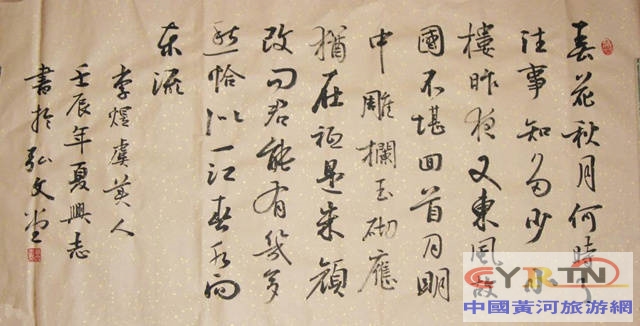 春花秋月何時了
往事知多少小
樓昨夜又東風故
國不堪回首月明
中雕欄玉砌應
猶在祇是朱顏
改問君能有幾多
愁恰似一江春水向
东流
李煜虞美人
壬辰年夏興志
書於弘文堂
CYRTN
中國黃河旅游網